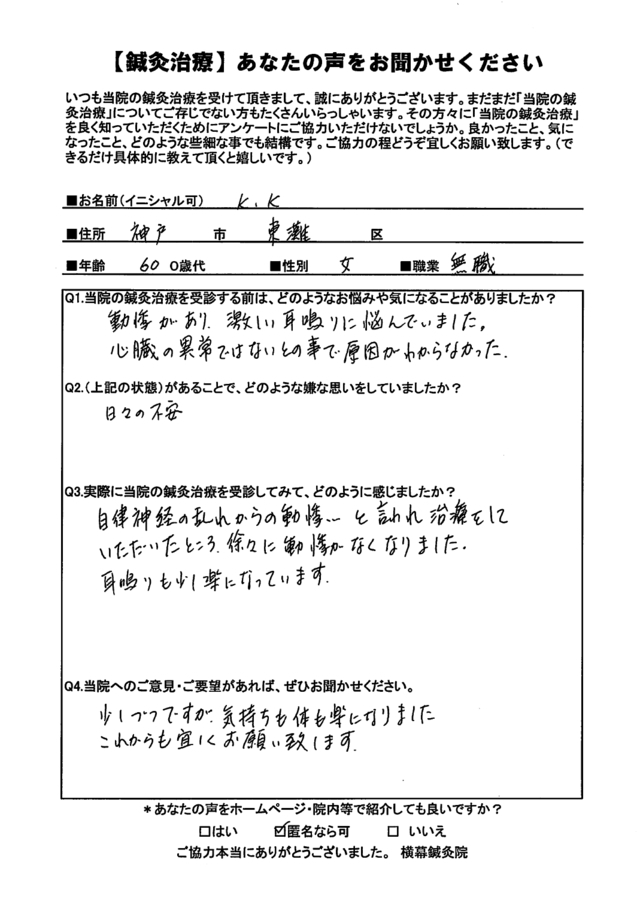 【鍼灸治療】あなたの声をお聞かせください
いつも当院の鍼灸治療を受けて頂きまして、誠にありがとうございます。まだまだ「当院の鍼
灸治療」についてご存じでない方もたくさんいらっしゃいます。その方々に「当院の鍼灸治療」
を良く知っていただくためにアンケートにご協力いただけないでしょうか。良かったこと、気に
なったこと、どのような些細な事でも結構です。ご協力の程どうぞ宜しくお願い致します。(で
きるだけ具体的に教えて頂くと嬉しいです。)
■お名前(イニシャル可) K.K
■住所 神戸 市 東灘 区
■年齢 60 0歳代 ■性別 女 ■職業 無職
Q1.当院の鍼灸治療を受診する前は、どのようなお悩みや気になることがありましたか?
動悸があり、激しい耳鳴りに悩んでいました。
心臓の異常ではないとの事で原因がわからなかった.
Q2.(上記の状態)があることで、どのような嫌な思いをしていましたか?
日々の不安
Q3.実際に当院の鍼灸治療を受診してみて、どのように感じましたか?
自律神経の乱れからの動悸… と言われ 治療をして
いただいたところ.徐々に動悸がなくなりました.
耳鳴りも少し楽になっています.
Q4.当院へのご意見・ご要望があれば、ぜひお聞かせください。
少しづつですが.気持ちも体も楽になりました
これからも宜しくお願い致します.
*あなたの声をホームページ・院内等で紹介しても良いですか?
□はい ☑匿名なら可 □ いいえ
ご協力本当にありがとうございました。 横幕鍼灸院